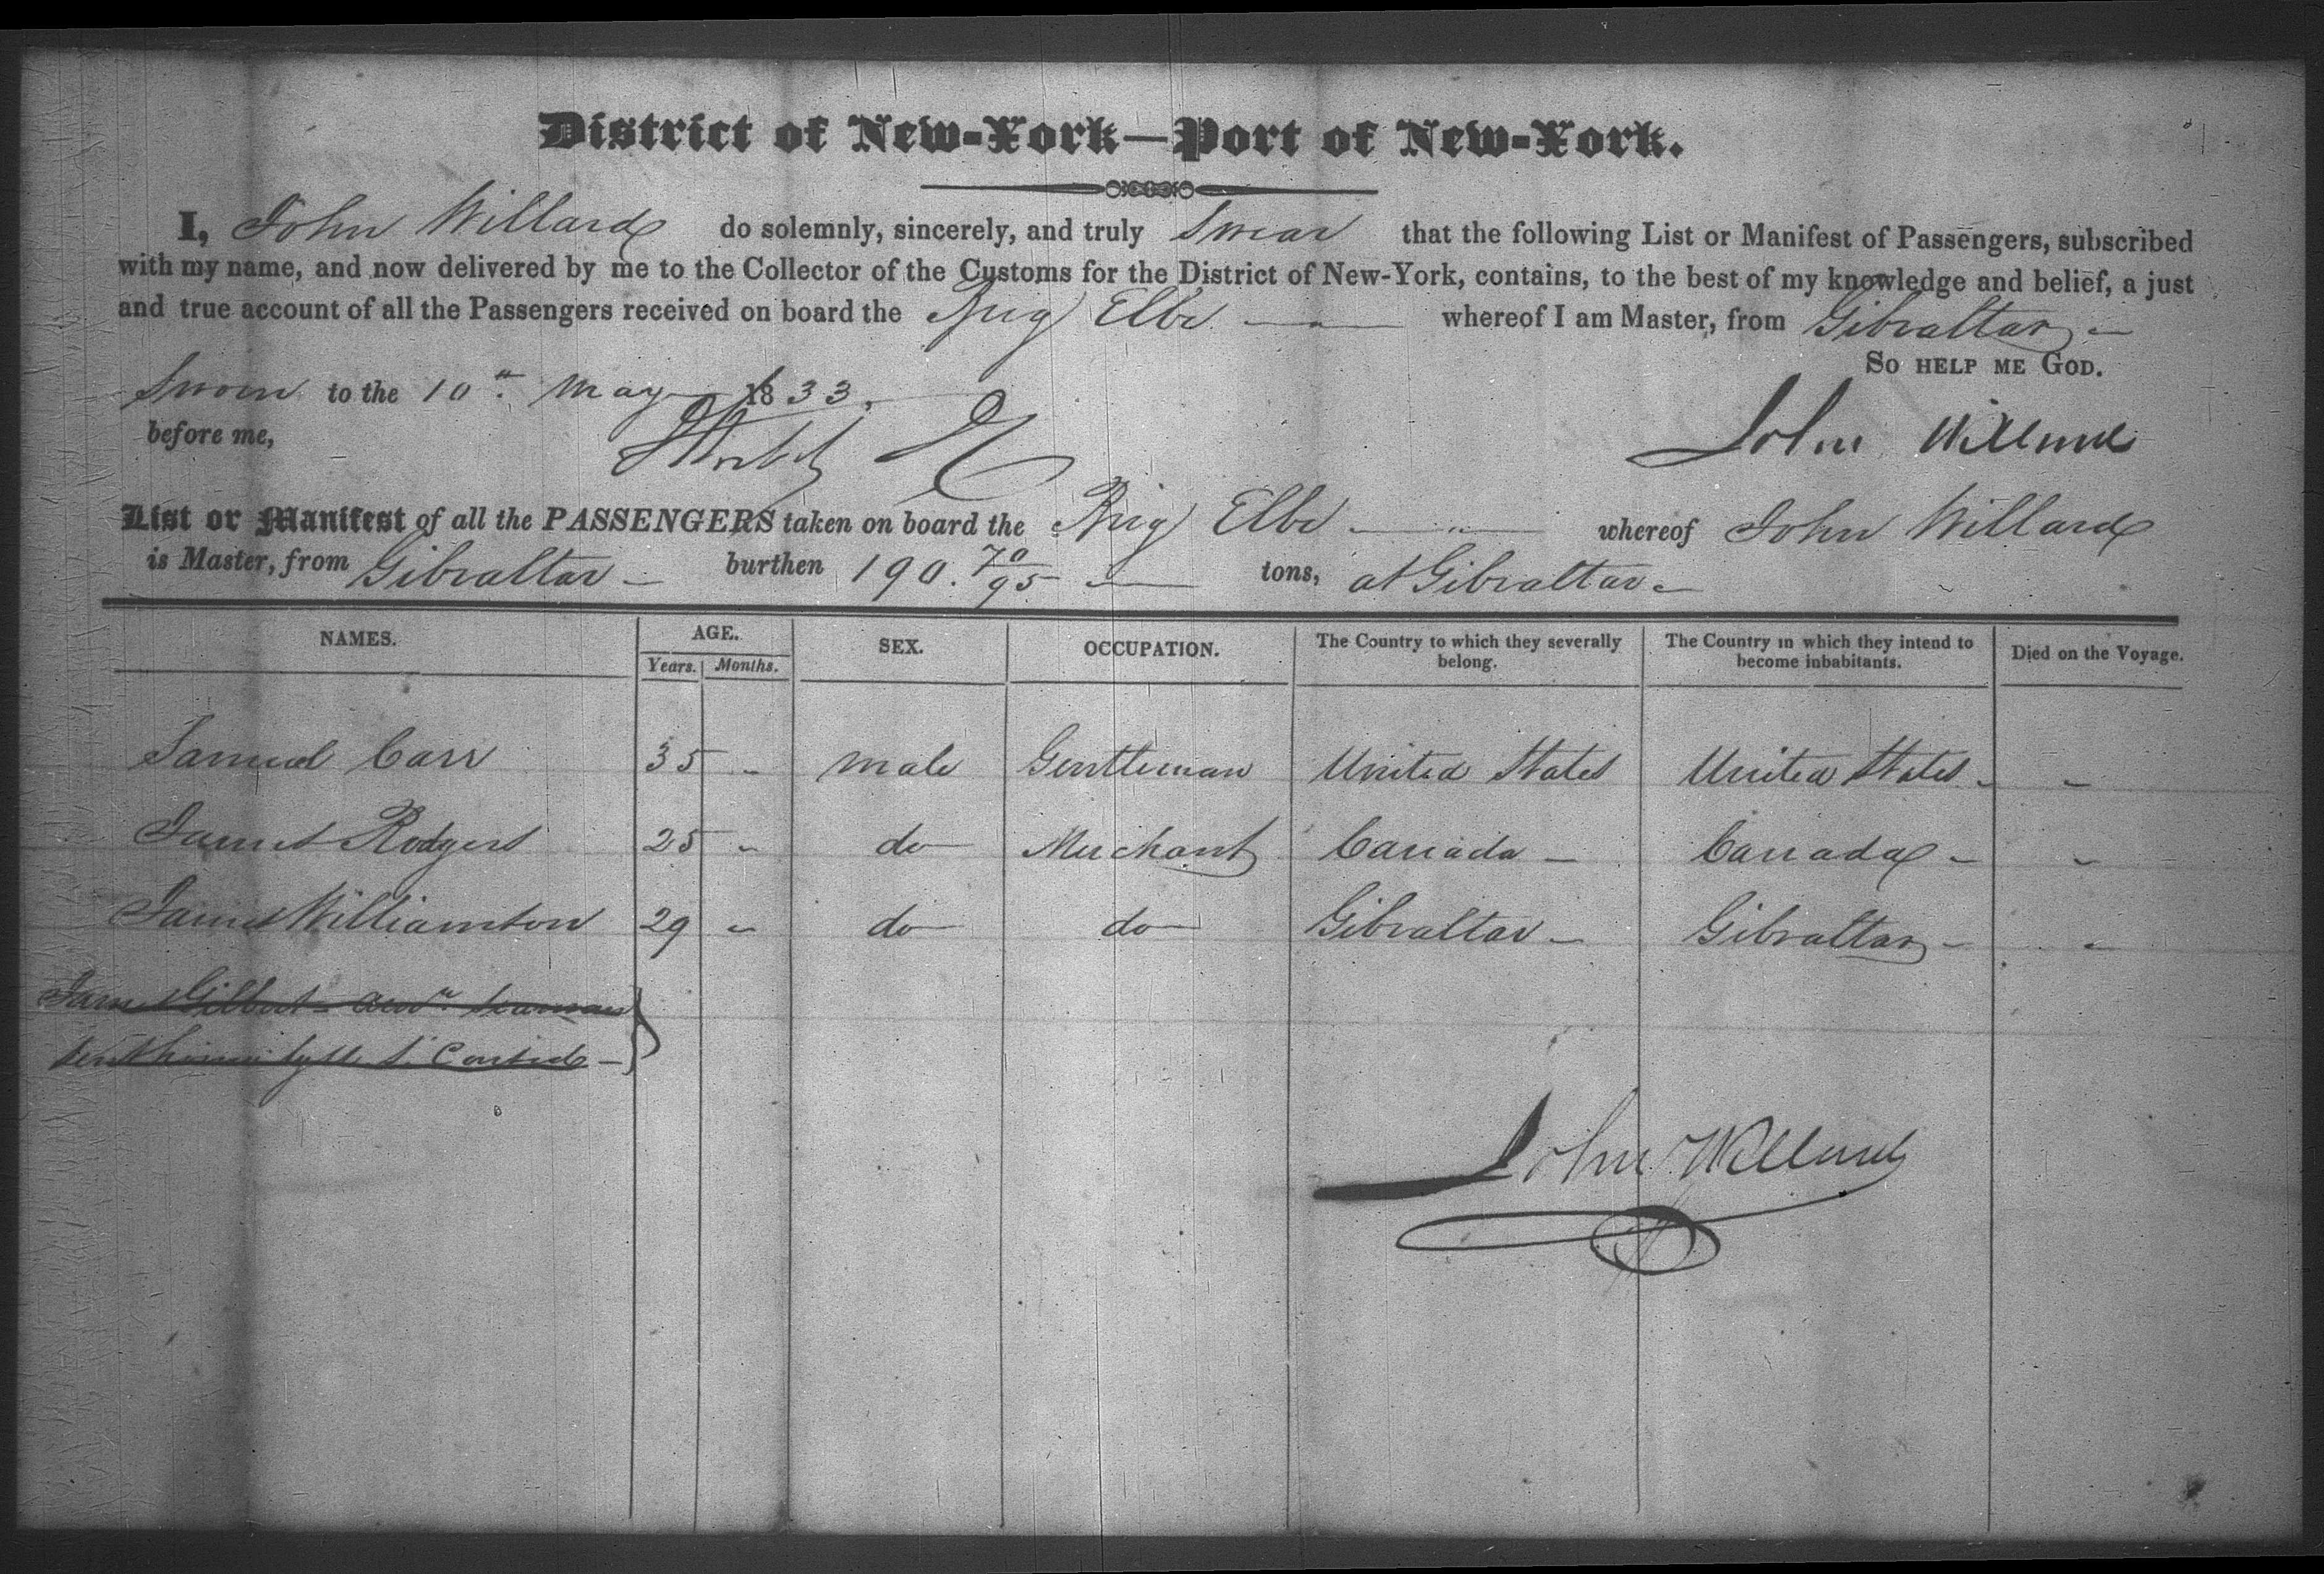 District of New-York—Port of New-York.
I, John Willard do solemnly, sincerely, and truly Swear that the following List or Manifest of Passengers, subscribed
with my name, and now delivered by me to the Collector of the Customs for the District of New-York, contains, to the best of my knowledge and belief, a just
and true account of all the Passengers received on board the Brig Elbe whereof I am Master, from Gibraltar
So help me God.
Sworn to the 10th May 1833,
before me,
John Willard
List or Manifest of all the PASSENGERS taken on board the Brig Elbe whereof John Willard
is Master, from Gibraltar burthen 190. 70/95 tons, at Gibraltar
NAMES. AGE. SEX. OCCUPATION. The Country to which they severally belong. The Country in which they intend to become inhabitants. Died on the Voyage.
Years. Months.
Samuel Carr 35 " male Gentleman United States United States - -
James Rodgers 25 " do Merchant Canada - Canada - "
James Williamson 29 " do do Gibraltar - Gibraltar - "
James Gilbert Seaman
John Willard